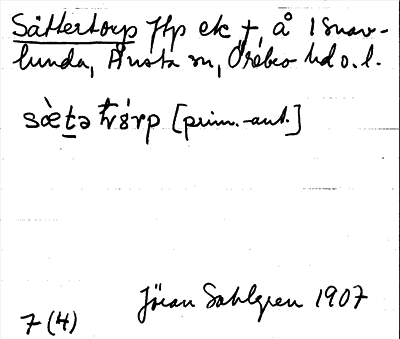 Sättertorp ftp ek †, å 1 Snav-
lunda, Ånsta sn, Örebro hd o. l.
sæ̀tə tórp [prim.-ant.]
Jöran Sahlgren 1907
7 (4)